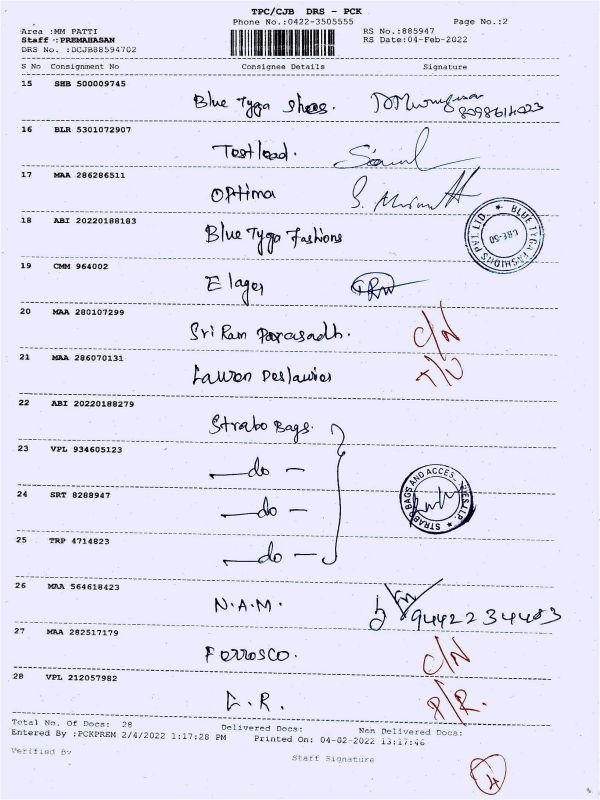 TPC/CJB DRS - PCK
Phone No.:0422-3505555 Page No.:2
Area :MM PATTI RS No.:885947
Staff :PREMAHASAN RS Date:04-Feb-2022
DRS No. :DCJB88594702
S No Consignment No Consignee Details Signature
15 SHB 500009745
Blue Tyga Shoes. 8098614023
16 BLR 5301072907
Testlead.
17 MAA 286286511
Optima
18 ABI 20220188183
Blue Tyga Fashions
BLUE TYGA FASHIONS PVT. LTD. ★ CBE-50
19 CMM 964002
Elager
20 MAA 280107299
Sri Ram Parasadh. C/N
21 MAA 286070131
Lauren Deslauries
22 ABI 20220188279
Strabo Bags.
23 VPL 934605123
—do—
24 SRT 8288947
—do—
STRABO BAGS AND ACCES
25 TRP 4714823
—do—
26 MAA 564618423
N.A.M. 9442234403
27 MAA 282517179
Ferrosco. C/N
28 VPL 212057982
L.R. P/R.
Total No. Of Docs: 28 Delivered Docs: Non Delivered Docs:
Entered By :PCKPREM 2/4/2022 1:17:28 PM Printed On: 04-02-2022 13:17:46
Verified By Staff Signature
4